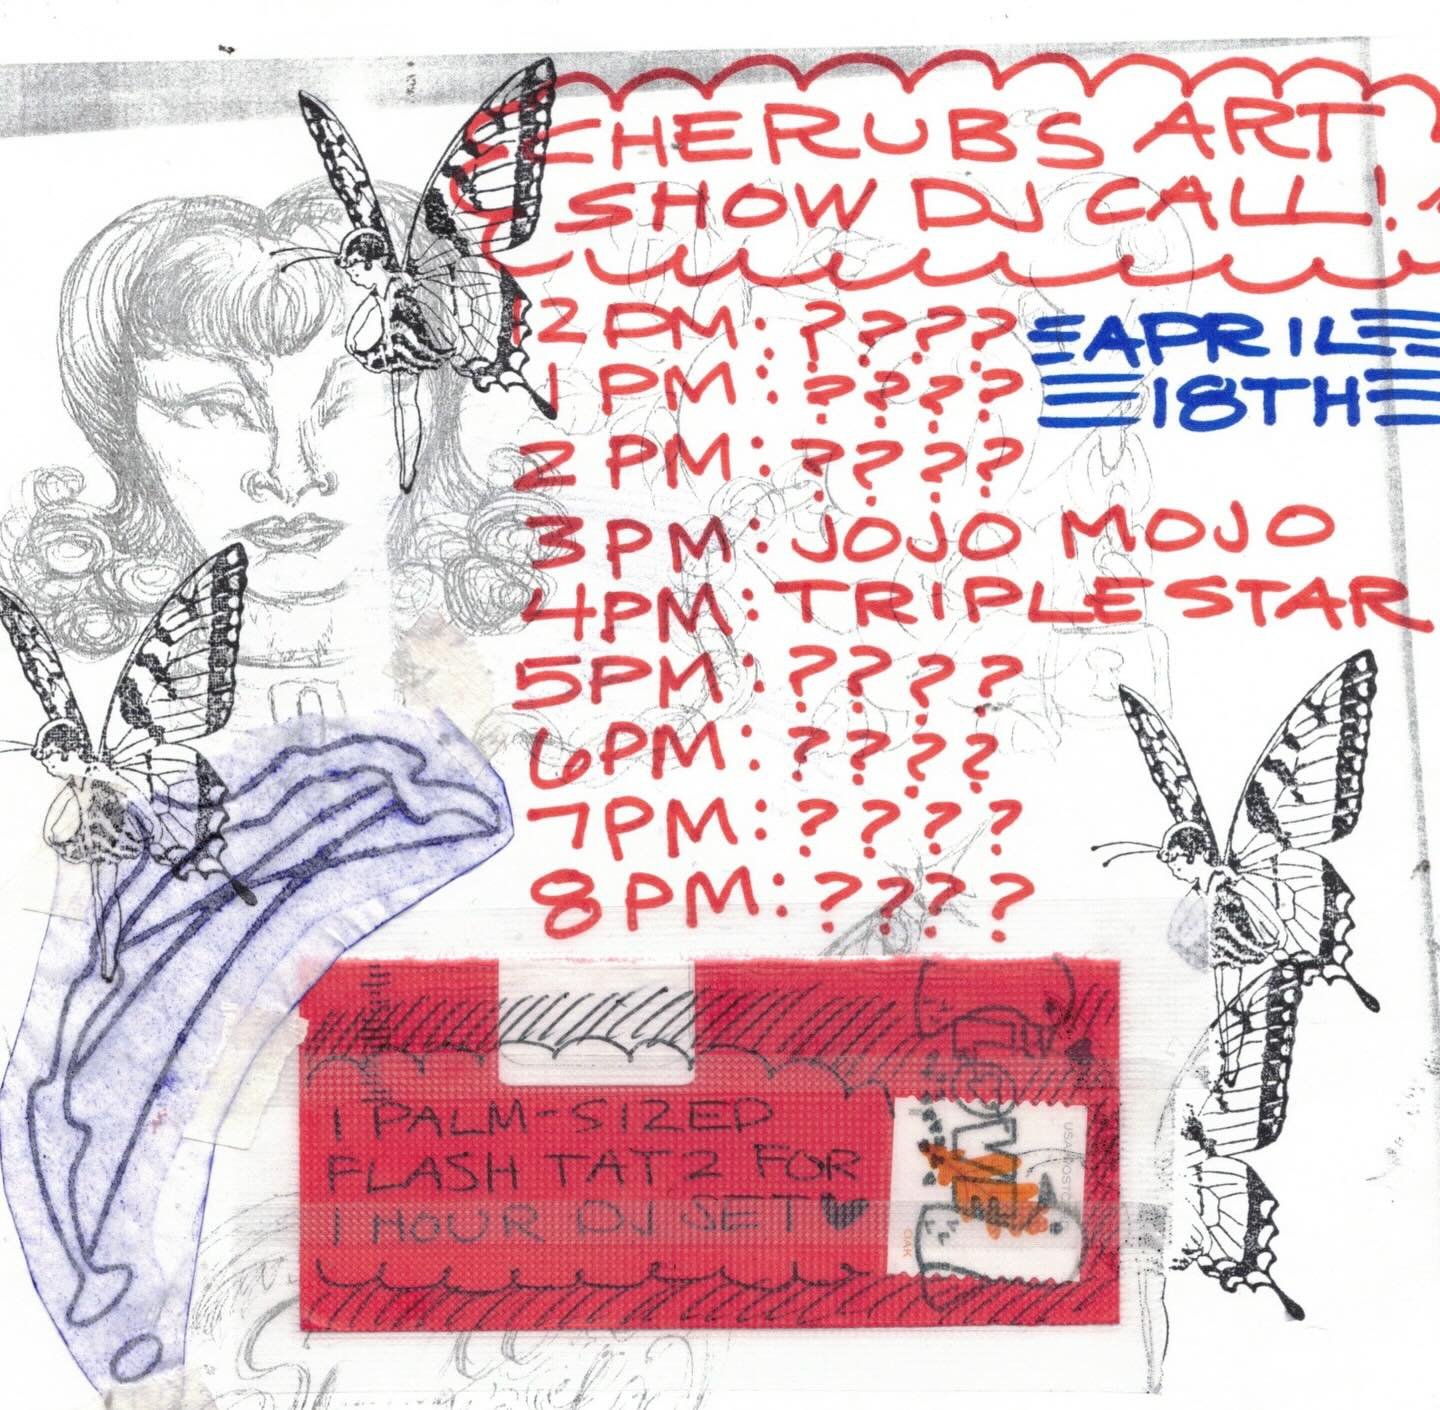 CHERUBS ART
SHOW DJ CALL!
12 PM: ????
APRIL
18TH
1 PM: ????
2 PM: ????
3PM: JOJO MOJO
4PM: TRIPLE STAR
5PM: ????
6PM: ????
7PM: ????
8PM: ????
1 PALM-SIZED
FLASH TAT 2 FOR
1 HOUR DJ SET
USA
OAK